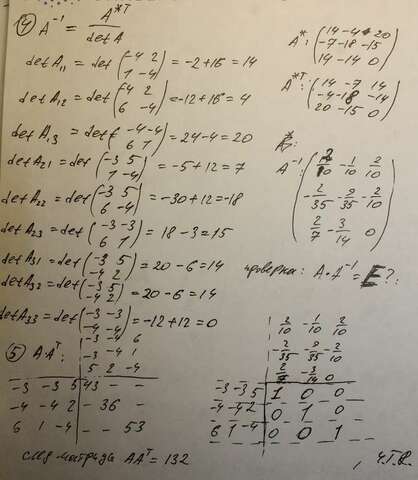 ④ A⁻¹ = A*ᵀ / det A
det A₁₁ = det (-4 2 / 1 -4) = -2+16 = 14
det A₁₂ = det (-4 2 / 6 -4) = -12+16 = 4
det A₁₃ = det (-4 -4 / 6 1) = 24-4 = 20
det A₂₁ = det (-3 5 / 1 -4) = -5+12 = 7
det A₂₂ = det (-3 5 / 6 -4) = -30+12 = -18
det A₂₃ = det (-3 -3 / 6 1) = 18-3 = 15
det A₃₁ = det (-3 5 / -4 2) = 20-6 = 14
det A₃₂ = det (-3 5 / -4 2) = 20-6 = 14
det A₃₃ = det (-3 -3 / -4 -4) = -12+12 = 0
A*: (14 -4 20
-7 -18 -15
14 -14 0)
A*ᵀ: (14 -7 14
-4 -18 -14
20 -15 0)
A⁻¹: (2/10 -1/10 2/10
-2/35 -9/35 -2/10
2/7 -3/14 0)
проверка: A·A⁻¹ = E?:
⑤ A·Aᵀ:
-3 -4 6
-3 -4 1
5 2 -4
-3 -3 5 43 - -
-4 -4 2 - 36 -
6 1 -4 - - 53
след матрица AAᵀ = 132
2/10 -1/10 2/10
-2/35 -9/35 -2/10
2/7 -3/14 0
-3 -3 5 1 0 0
-4 -4 2 0 1 0
6 1 -4 0 0 1
, ч.т.д.